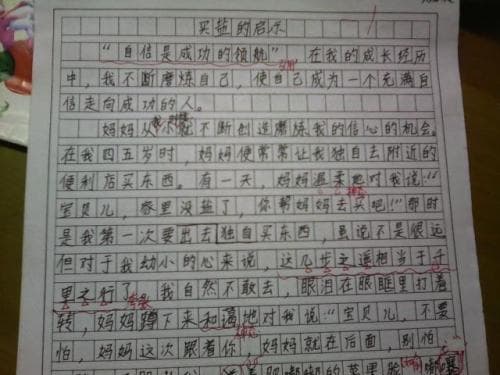 买盐的启示
“自信是成功的领航”在我的成长经历
中，我不断磨炼自己，使自己成为一个充满自
信走向成功的人。
妈妈从小就不断创造磨炼我的信心的机会。
在我四五岁时，妈妈便常常让我独自去附近的
便利店买东西。有一天，妈妈温柔地对我说：“
宝贝儿，家里没盐了，你帮妈妈去买吧！”那时
是我第一次要出去独自买东西，虽说不是很远
但对于我幼小的心来说，这几步之遥相当于千
里之行了。我自然不敢去，眼泪在眼眶里打着
转，妈妈蹲下来和蔼地对我说：“宝贝儿，不要
怕，妈妈这次跟着你，妈妈就在后面，别怕
嘟嘟的苹果脸